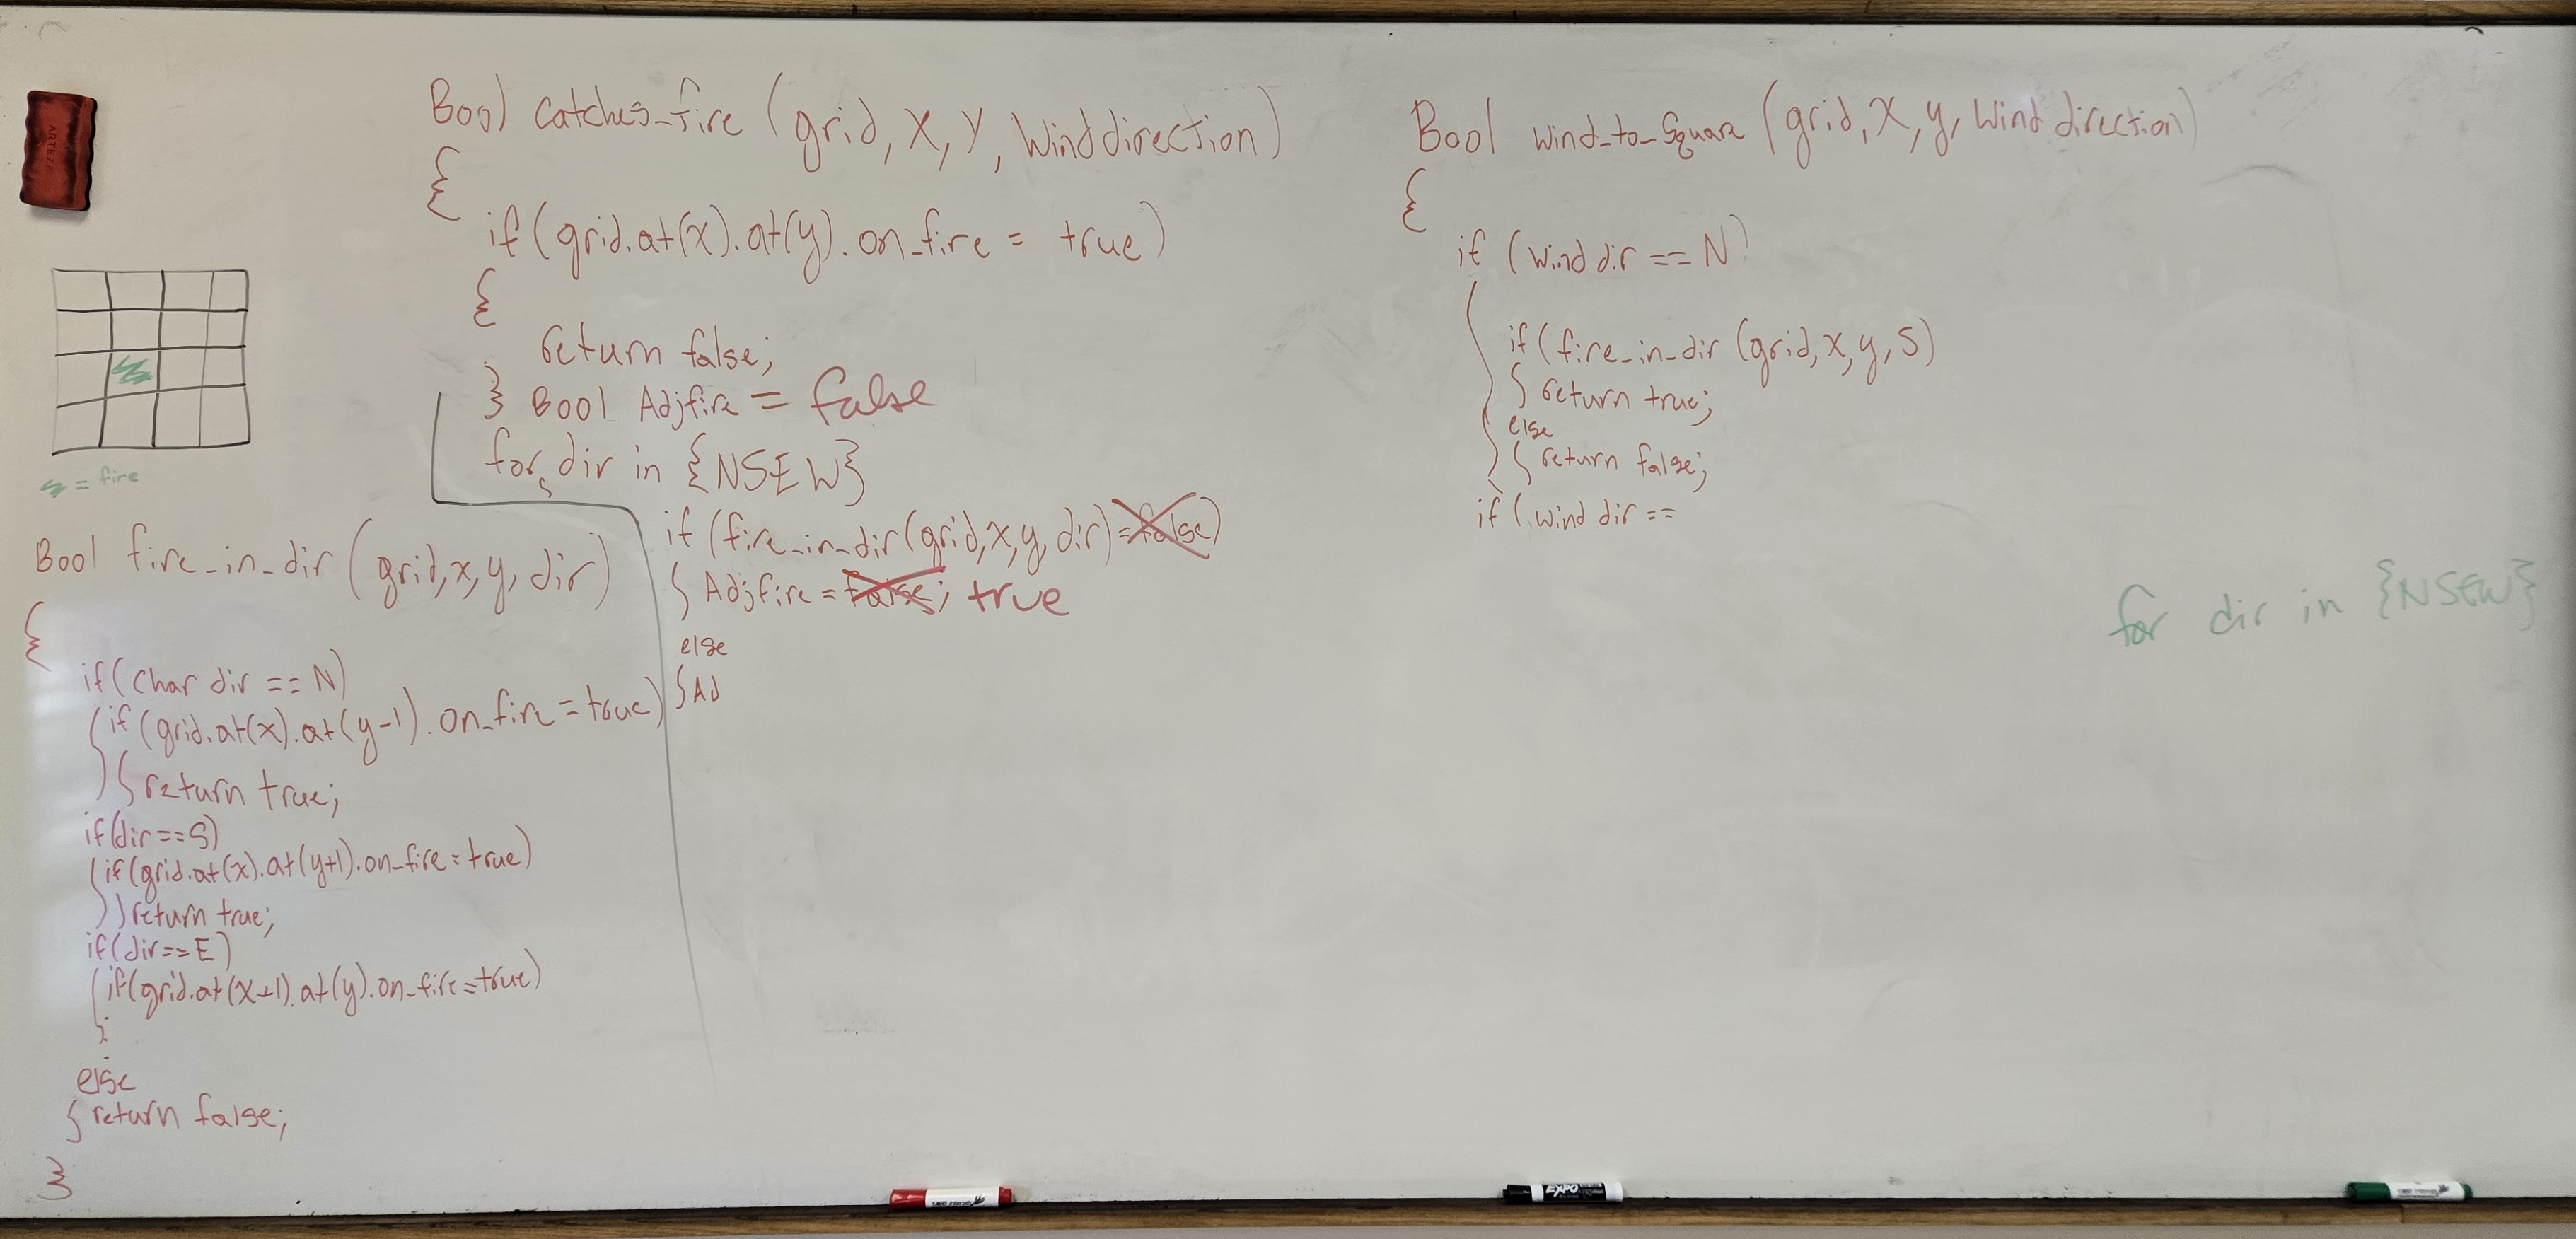 ARTEZA
Bool catches_fire (grid, X, Y, Winddirection)
{
if (grid.at(x).at(y).on_fire = true)
{
return false;
} Bool Adjfire = false
for dir in {NSEW}
{
if (fire_in_dir(grid,x,y,dir)=false)
{ Adjfire = false; true
else
{ Ad
= fire
Bool fire_in_dir (grid,x,y,dir)
{
if (Char dir == N)
{ if (grid.at(x).at(y-1).on_fire = true)
} { return true;
if(dir==S)
{ if(grid.at(x).at(y+1).on_fire=true)
} } return true;
if(dir==E)
{ if(grid.at(x+1).at(y).on_fire=true)
:
else
{ return false;
}
Bool wind_to_Square (grid, X, y, Wind direction)
{
if (wind dir == N)
{
if (fire_in_dir (grid,x,y,S)
{ return true;
else
} { return false;
if (wind dir ==
for dir in {NSEW}
EXPO